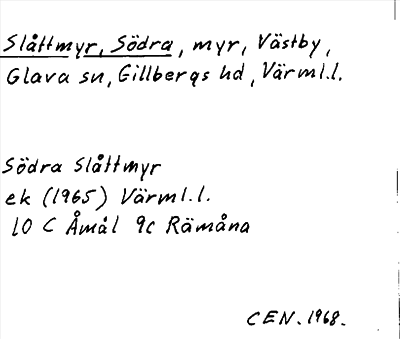 Slåttmyr, Södra, myr, Västby,
Glava sn, Gillbergs hd, Värml.l.
Södra Slåttmyr
ek (1965) Värml.l.
10 C Åmål 9c Rämåna
CEN. 1968.